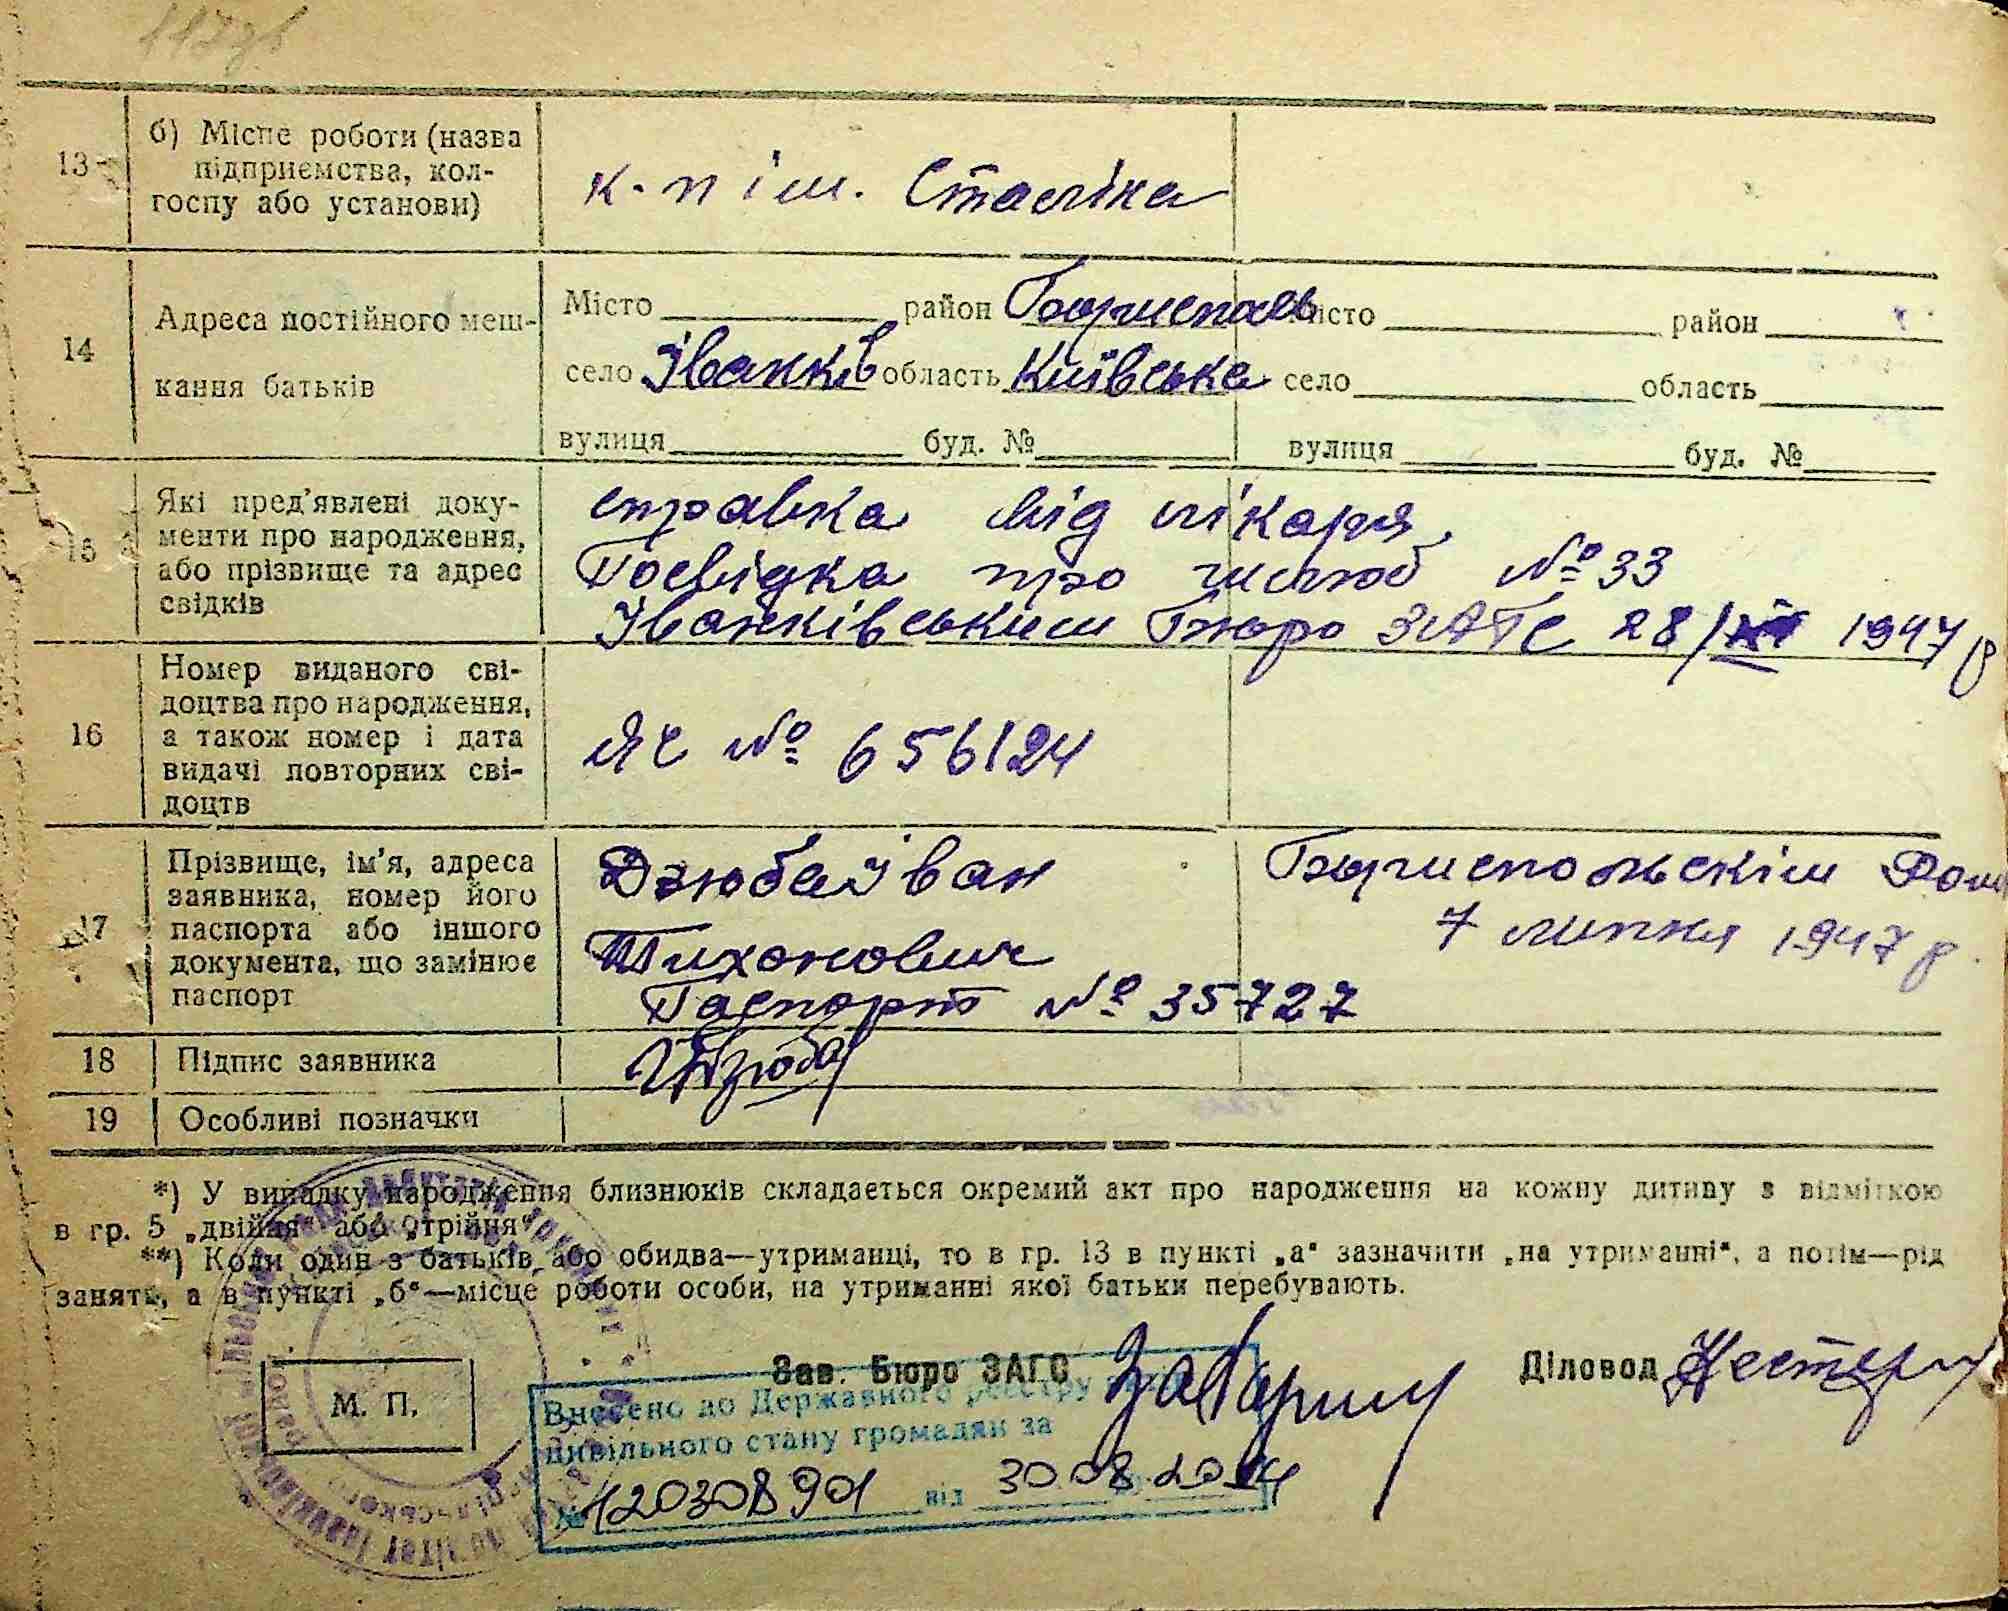 117зв
13
б) Місце роботи (назва
підприємства, кол-
госпу або установи)
к-п ім. Сталіна
14
Адреса постійного меш-
кання батьків
Місто район Бориспіль
село Іванків область Київська
вулиця буд. №
Місто район
село область
вулиця буд. №
15
Які пред'явлені доку-
менти про народження,
або прізвище та адрес
свідків
справка від лікаря,
Посвідка про шлюб № 33
Іванківським Бюро ЗАГС 28/ 1947 р
16
Номер виданого сві-
доцтва про народження,
а також номер і дата
видачі повторних сві-
доцтв
ЯЧ № 656124
17
Прізвище, ім'я, адреса
заявника, номер його
паспорта або іншого
документа, що замінює
паспорт
Дзюба Іван
Тихонович
Паспорт № 35727
Бориспольскім
7 липня 1947 р.
18
Підпис заявника
Дзюба
19
Особливі позначки
*) У випадку народження близнюків складається окремий акт про народження на кожну дитину з відміткою
в гр. 5 „двійня“ або „трійня“
**) Коли один з батьків, або обидва—утриманці, то в гр. 13 в пункті „а“ зазначити „на утриманні“, а потім—рід
занять, а в пункті „б“—місце роботи особи, на утриманні якої батьки перебувають.
М. П.
Зав. Бюро ЗАГС
Діловод Нестер
Внесено до Державного реєстру
цивільного стану громадян за
№ 12030890 від 30.08.2014